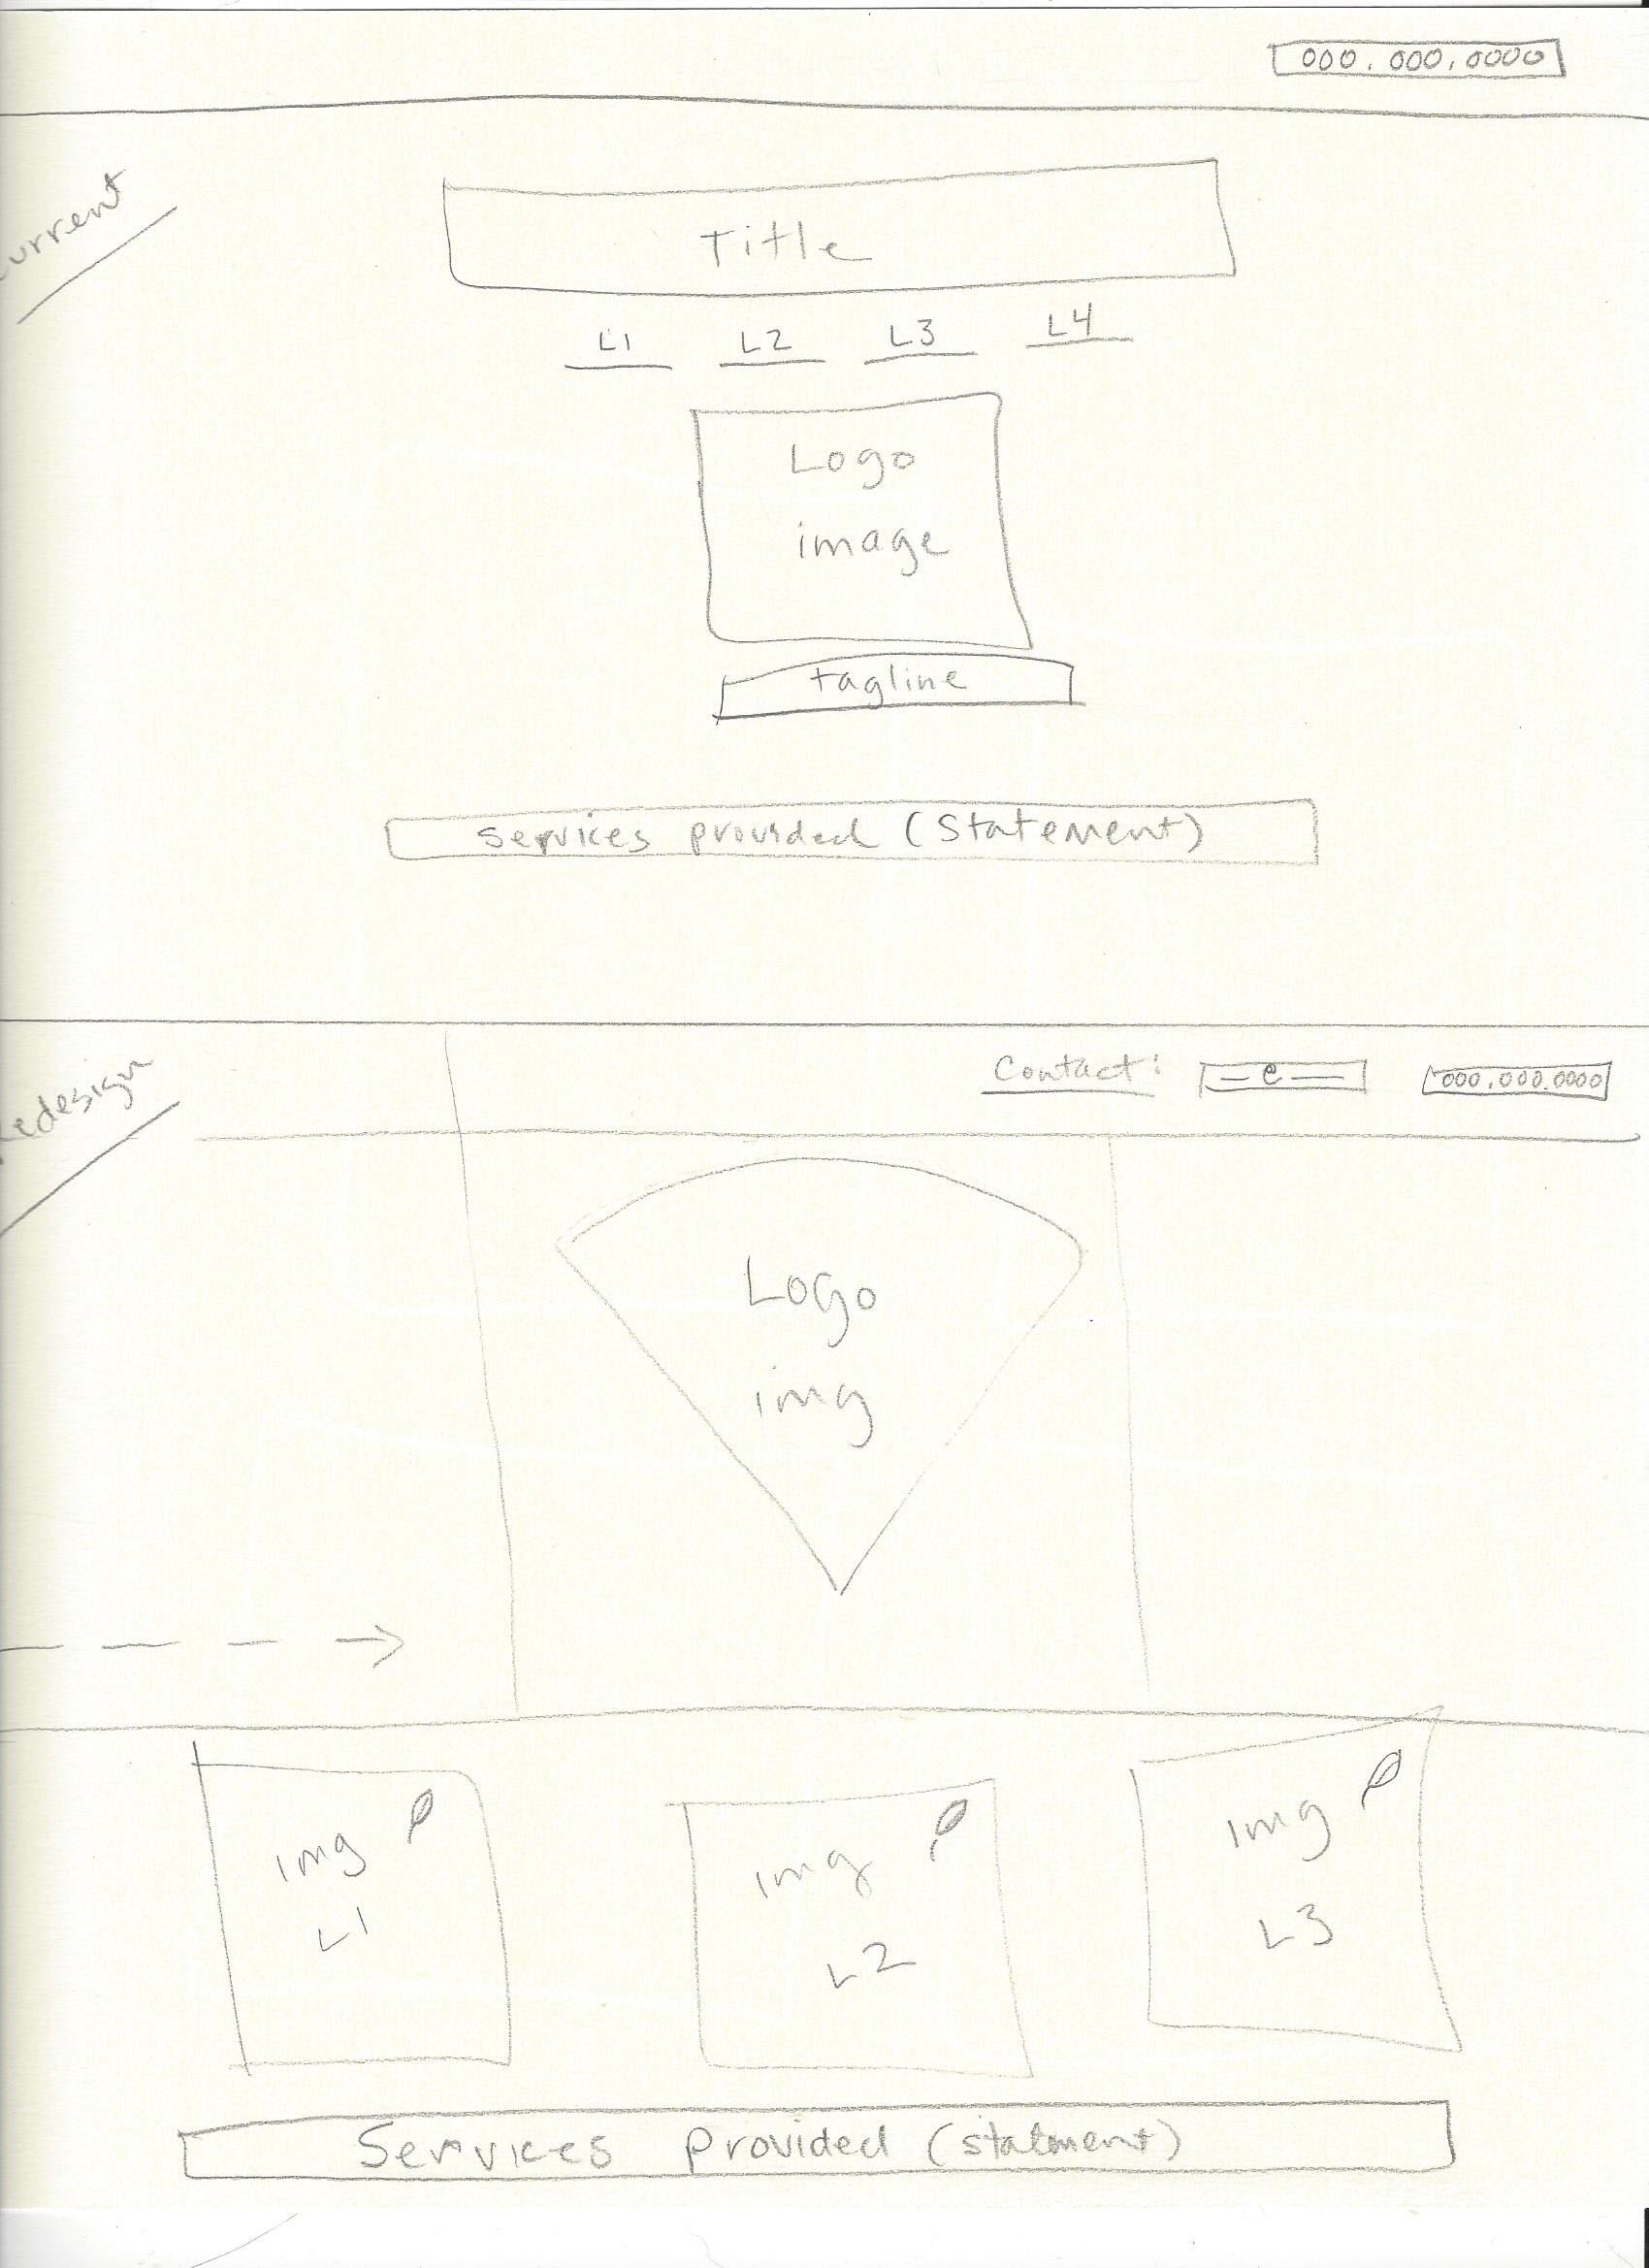 000.000.0000
Current
Title
L1 L2 L3 L4
Logo
image
tagline
services provided (Statement)
Redesign
Contact: — e — 000.000.0000
Logo
img
img
L1
img
L2
img
L3
Services Provided (statment)